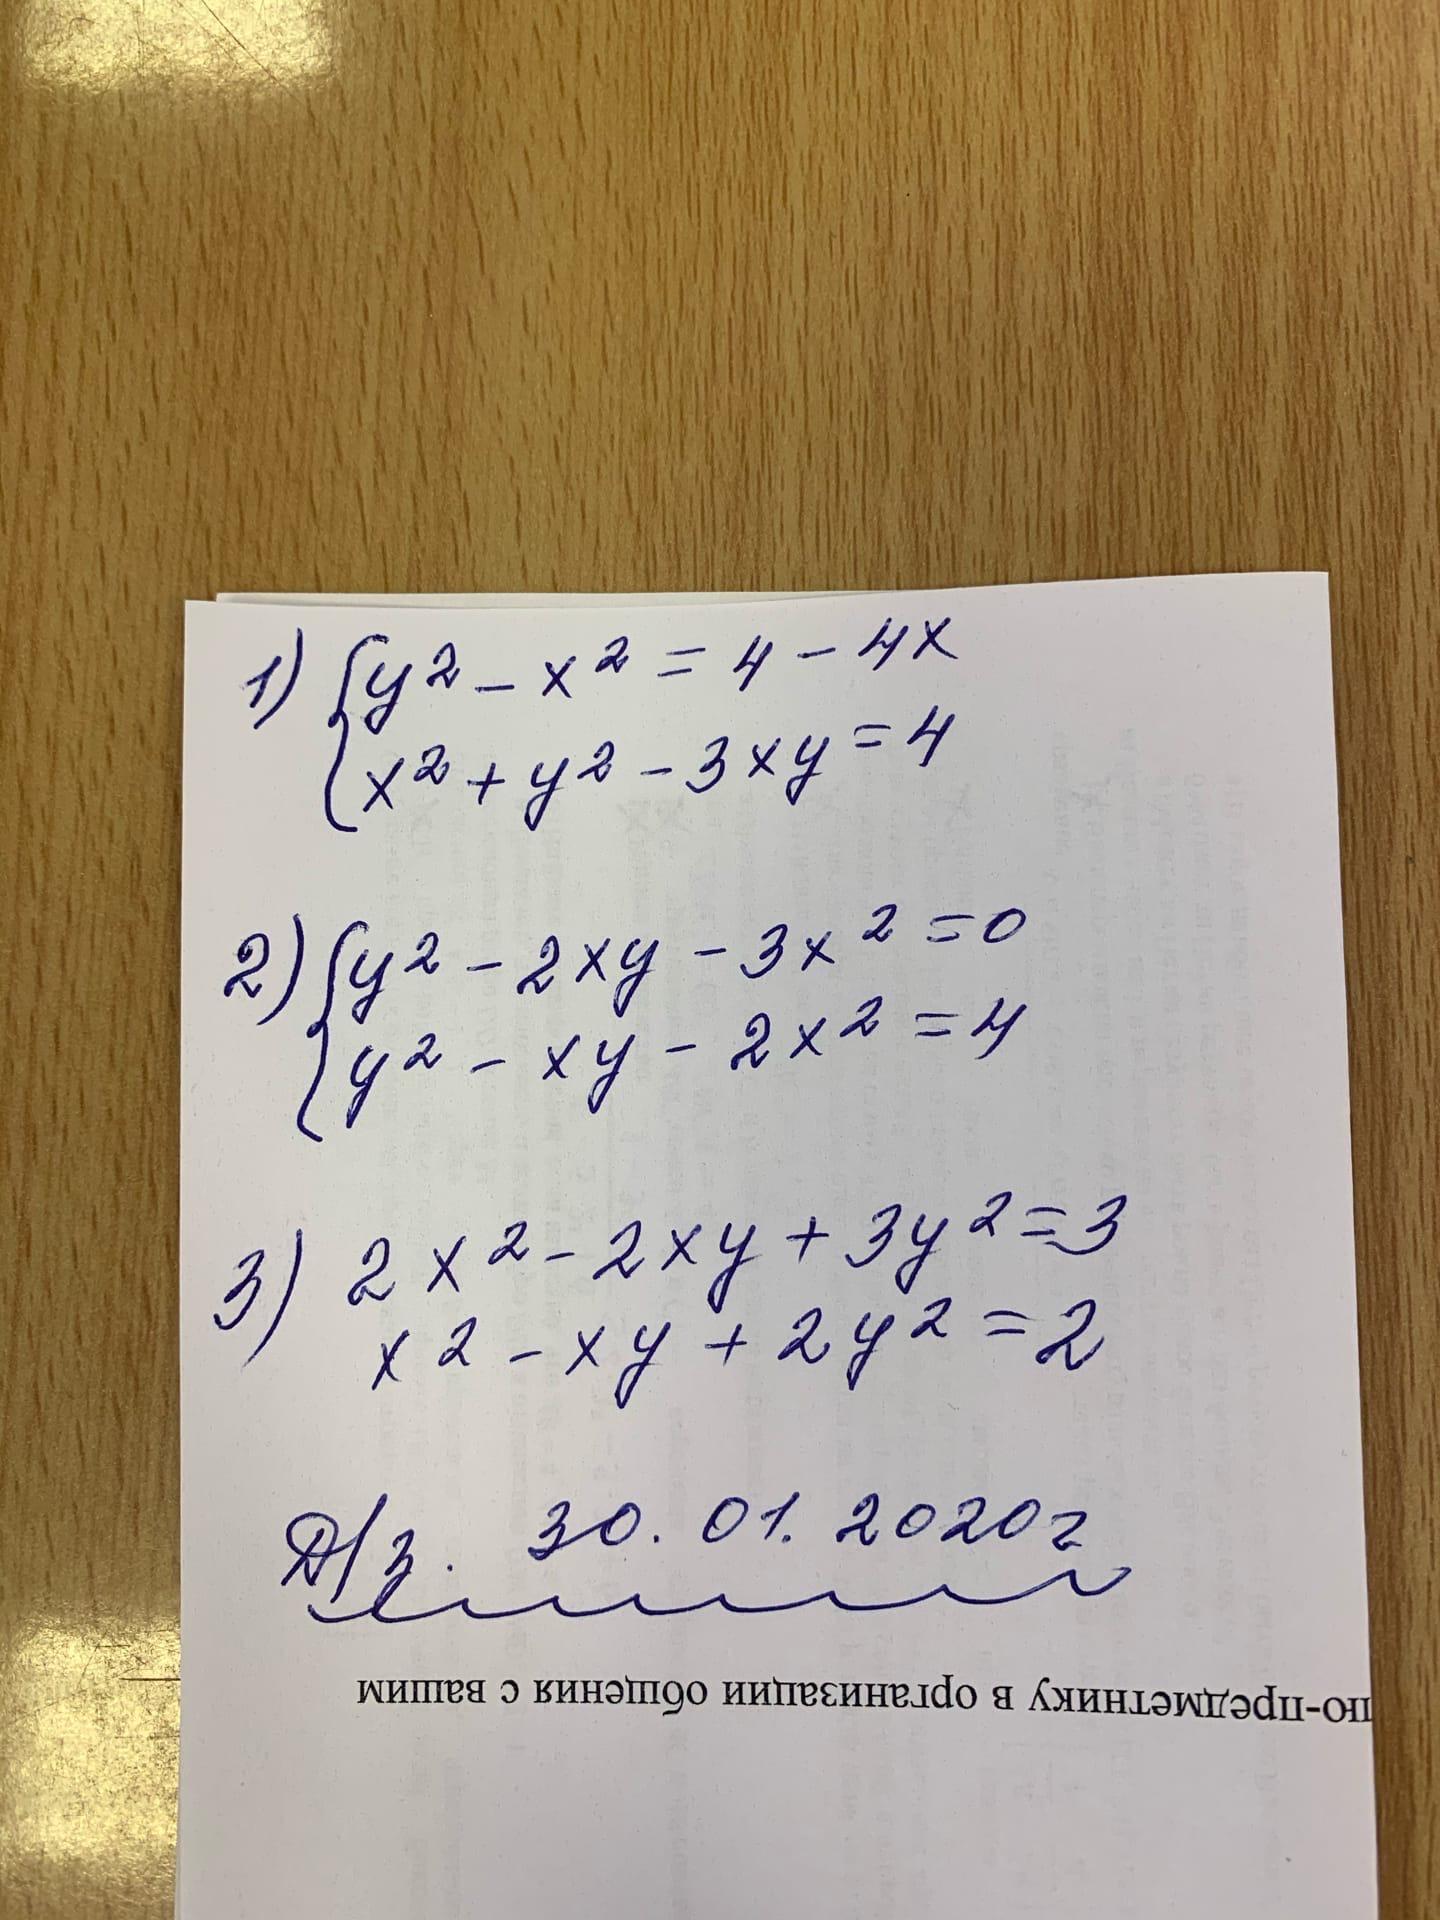 1) { y² - x² = 4 - 4x
x² + y² - 3xy = 4
2) { y² - 2xy - 3x² = 0
y² - xy - 2x² = 4
3) 2x² - 2xy + 3y² = 3
x² - xy + 2y² = 2
Д/з. 30.01.2020г
по-предметнику в организации общения с вашим